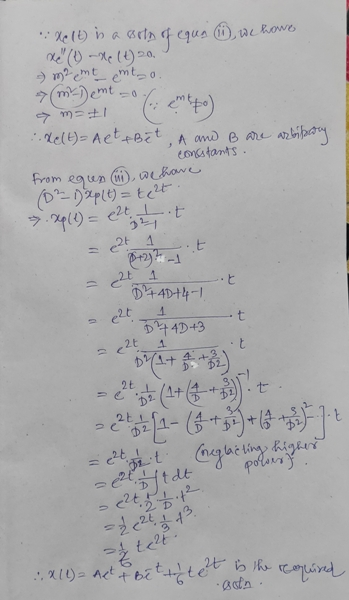 ∵ xc(t) is a soln of equn (ii), we have
xc''(t) - xc(t) = 0.
⇒ m²e^mt - e^mt = 0.
⇒ (m²-1)e^mt = 0. (∵ e^mt ≠ 0)
⇒ m = ±1
∴ xc(t) = Ae^t + Be^-t, A and B are arbitrary
constants.
From equen (iii), we have
(D²-1)xp(t) = te^2t.
⇒ xp(t) = e^2t · 1/(D²-1) · t
= e^2t · 1/((D+2)²-1) · t
= e^2t · 1/(D²+4D+4-1) · t
= e^2t · 1/(D²+4D+3) · t
= e^2t · 1/(D²(1 + 4/D + 3/D²)) · t
= e^2t · 1/D² (1 + (4/D + 3/D²))^-1 · t
= e^2t · 1/D² [1 - (4/D + 3/D²) + (4/D + 3/D²)² - ] · t
= e^2t · 1/D² · t (neglecting higher
power)
= e^2t · 1/D ∫t dt
= e^2t · 1/2 · 1/D · t²
= 1/2 e^2t · 1/3 · t³
= 1/6 te^2t
∴ x(t) = Ae^t + Be^-t + 1/6 te^2t is the required
soln.